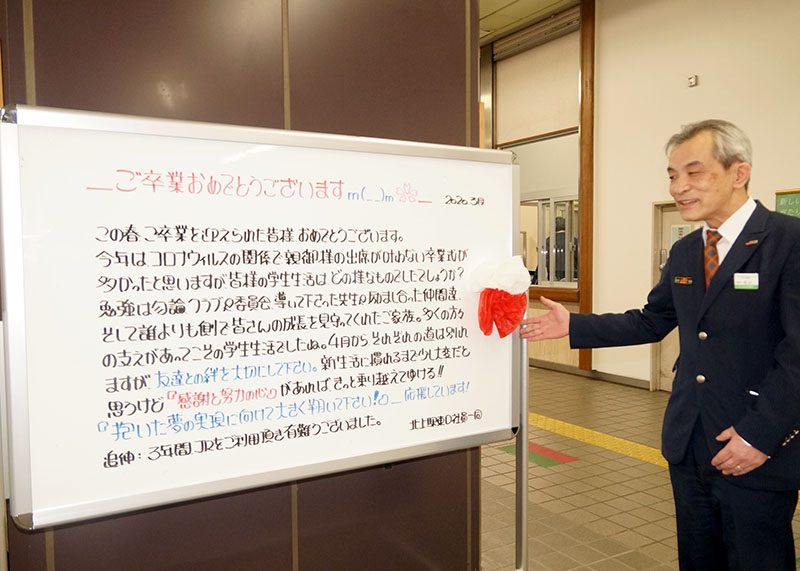 ご卒業おめでとうございますm(_ _)m
2020.3月
この春ご卒業を迎えられた皆様 おめでとうございます。
今年はコロナウィルスの関係で親御様の出席が叶わない卒業式が
多かったと思いますが皆様の学生生活はどの様なものでしたでしょうか?
勉強は勿論クラブや委員会、導いて下さった先生や励まし合った仲間達、
そして誰よりも側で皆さんの成長を見守ってくれたご家族。多くの方々
の支えがあってこその学生生活でしたね。4月からそれぞれの道は別れ
ますが友達との絆を大切にして下さい。新生活に慣れるまで少し大変だと
思うけど『感謝と努力の心』があればきっと乗り越えてゆける!!
『抱いた夢の実現に向けて大きく翔いて下さい!』_応援しています!
追伸:3年間JRをご利用頂き有難うございました。
北上駅東口社員一同
新しい